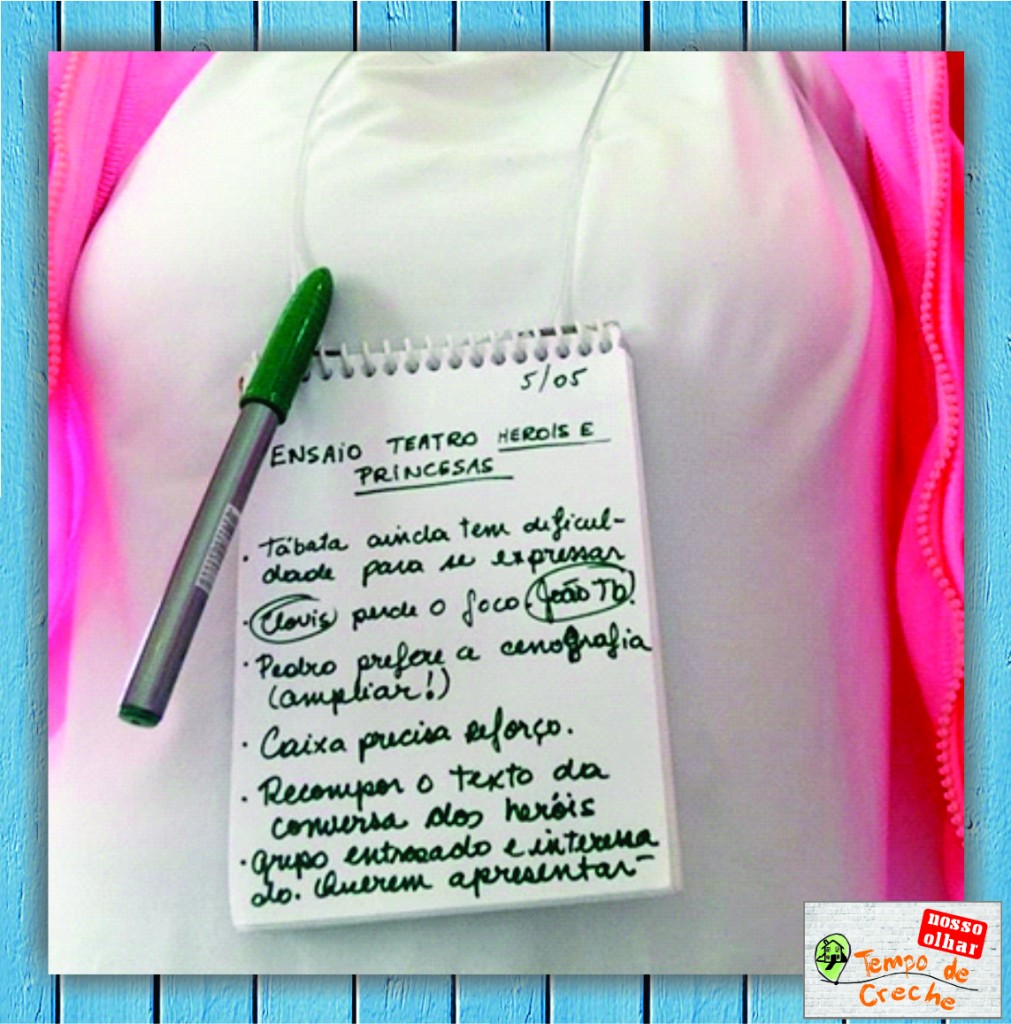 5/05
ENSAIO TEATRO HEROIS E
PRINCESAS
· Tábata ainda tem dificul-
dade para se expressar
· Clovis perde o foco. João Tb.
· Pedro prefere a cenografia
(ampliar!)
· Caixa precisa reforço.
· Recompor o texto da
conversa dos heróis
· Grupo entrosado e interessa
do. Querem apresentar-
nosso
olhar
Tempo de
Creche